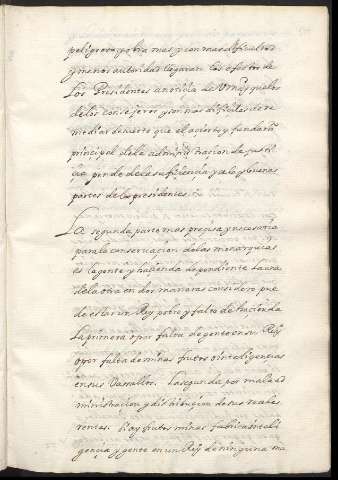 peligrosa y obra mas, y con mas dificultad
y menos autoridad llegaran los efectos de
los Presidentes a noticia de V. Mag. que los
de los consejeros y son mas dificiles de re
mediar de suerte que el acierto y fundamto
principal de la administracion de justi
cia pende de la suficiencia y zelo y buenas
partes de los presidentes.
La segunda parte mas precisa y necesaria
para la conservacion de las monarquias
es la gente y hacienda dependiente la una
de la otra en dos maneras considero pue
de estar un Rey pobre y falto de hacienda
La primera o por falta de gente en su Rey
o por falta de minas frutos o inteligencias
en sus Vasallos. La segunda por mala ad
ministracion y distribucion de sus reales
rentas. Hay frutos minas fabricas inteli
gencia y gente en un Rey de ninguna ma